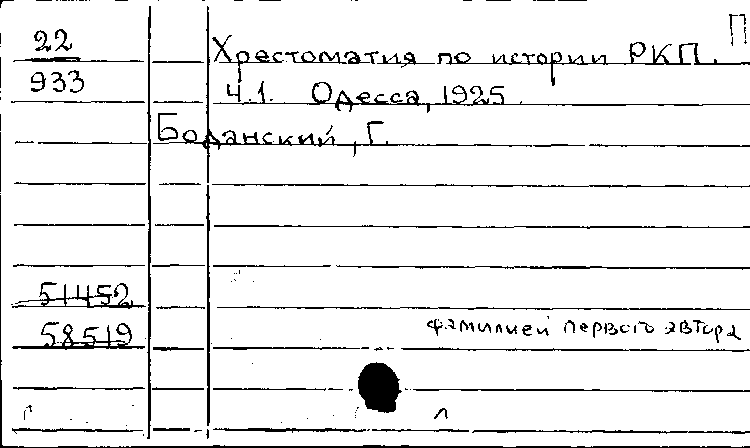 П
22 Хрестоматия по истории РКП.
933 Ч.1. Одесса, 1925.
Боданский, Г.
51452
58519 фамилией первого автора